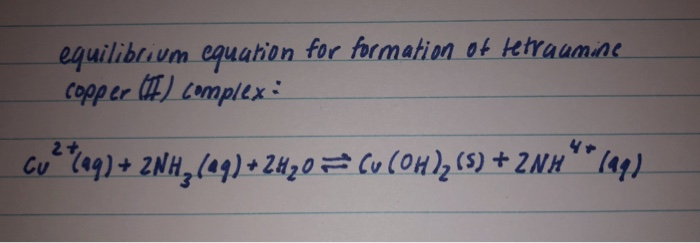 equilibrium equation for formation of tetraamine
copper (II) complex:
Cu²⁺(aq) + 2NH₃(aq) + 2H₂O ⇌ Cu(OH)₂(s) + 2NH⁴⁺(aq)